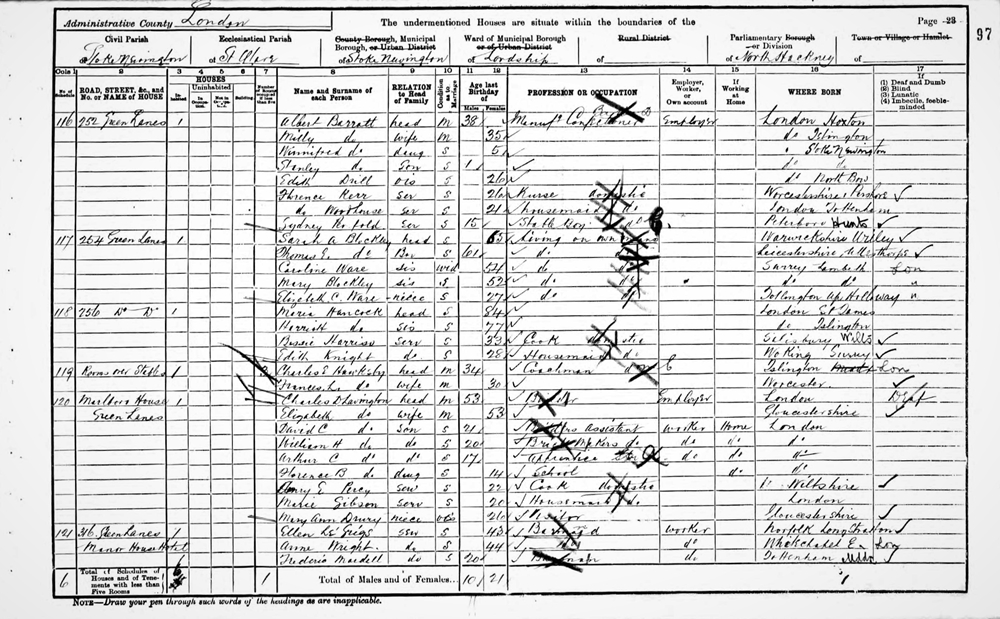 Administrative County London
The undermentioned Houses are situate within the boundaries of the
Page 28
97
Civil Parish
Ecclesiastical Parish
County Borough, Municipal Borough, or Urban District
Ward of Municipal Borough or of Urban District
Rural District
Parliamentary Borough or Division
Town or Village or Hamlet
of Stoke Newington
of St Olave
of Stoke Newington
of Lordship
of
of North Hackney
of
Cols 1 2 3 4 5 6 7 8 9 10 11 12 13 14 15 16 17
No. of Schedule
ROAD, STREET, &c., and No. or NAME of HOUSE
HOUSES
Inhabited
Uninhabited
In Occupation
Not in Occupation
Building
Name and Surname of each Person
RELATION to Head of Family
Condition as to Marriage
Age last Birthday of
Males Females
PROFESSION OR OCCUPATION
Employer, Worker, or Own account
If Working at Home
WHERE BORN
If (1) Deaf and Dumb (2) Blind (3) Lunatic (4) Imbecile, feeble-minded
116 252 Green Lanes 1 Albert Barratt head M 38 Manuf Confectioner Employer London Hoxton
Milly do wife M 35 do Islington
Winnifred do daug S 5 Stoke Newington
Stanley do Son S 1 do do
Edith Drill vis S 26 do
Florence Kerr Ser S 26 Nurse domestic Worcestershire Pershore
do Woodhouse Ser S 21 Housemaid do London Tottenham
Sydney Ser S 15 Stable boy Peterboro Hunts
117 254 Green Lanes 1 Sarah A Blockley head S 65 Living on own Warwickshire
Thomas E. do Bro S 61 do Leicestershire
Caroline Ware sis Wid 54 do Surrey Lambeth Lon
Mary Blockley sis S 52 do do do
Elizabeth C. Ware niece S 27 do Tollington Holloway
118 256 Do Do 1 Maria Hancock head S 84 London St James
Harriett do Sis S 77 do Islington
Bessie Harrison Serv S 33 Cook domestic Salisbury Wilts
Edith Knight do S 28 Housemaid do Woking Surrey
119 Rooms over Stables 1 Charles E Hawksby head M 34 Coachman Islington Lon
Frances L. do wife M 30 Worcester
120 Marlboro House 1 Charles D Lavington head M 53 Employer London Deaf
Green Lanes Elizabeth do wife M 53 Gloucestershire
David C do Son S 21 Assistant Worker Home London
William H do do S 20 Brick Makers do do do do
Arthur C do do S 17 Apprentice do do do
Florence B do daug S 14 School do do
E. Percy Serv S 22 Cook domestic Wiltshire
Marie Gibson Serv S 20 Housemaid do London
Mary Ann Drury niece vis S 26 Visitor Gloucestershire
121 316 Green Lanes 1 Ellen Ser S 43 Worker Norfolk Long Stratton
Manor House Hotel Anne Wright do S 44 do Whitechapel Lon
Frederic Mardell do S 20 do Tottenham Middx
6 Total of Schedules of Houses and of Tenements with less than Five Rooms
1 Total of Males and of Females... 10 21
NOTE—Draw your pen through such words of the headings as are inapplicable.